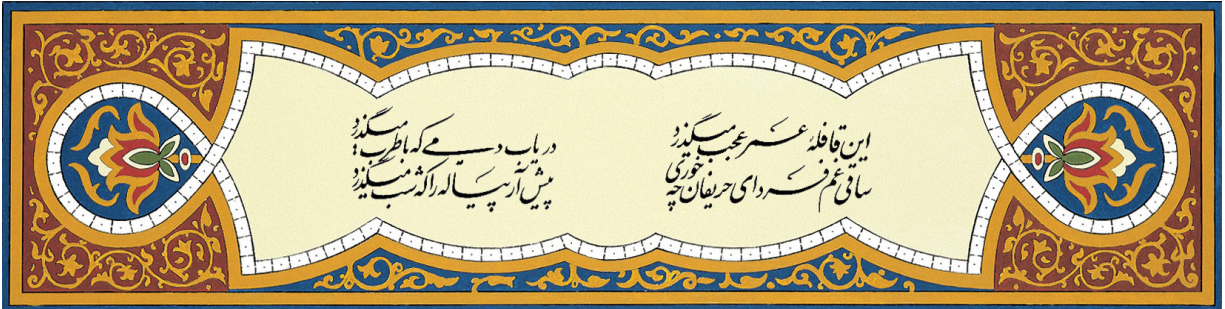 این قافلهٔ عمر عجب میگذرد
دریاب دمی که با طرب میگذرد
ساقی غم فردای حریفان چه خوری
پیش آر پیاله را که شب میگذرد